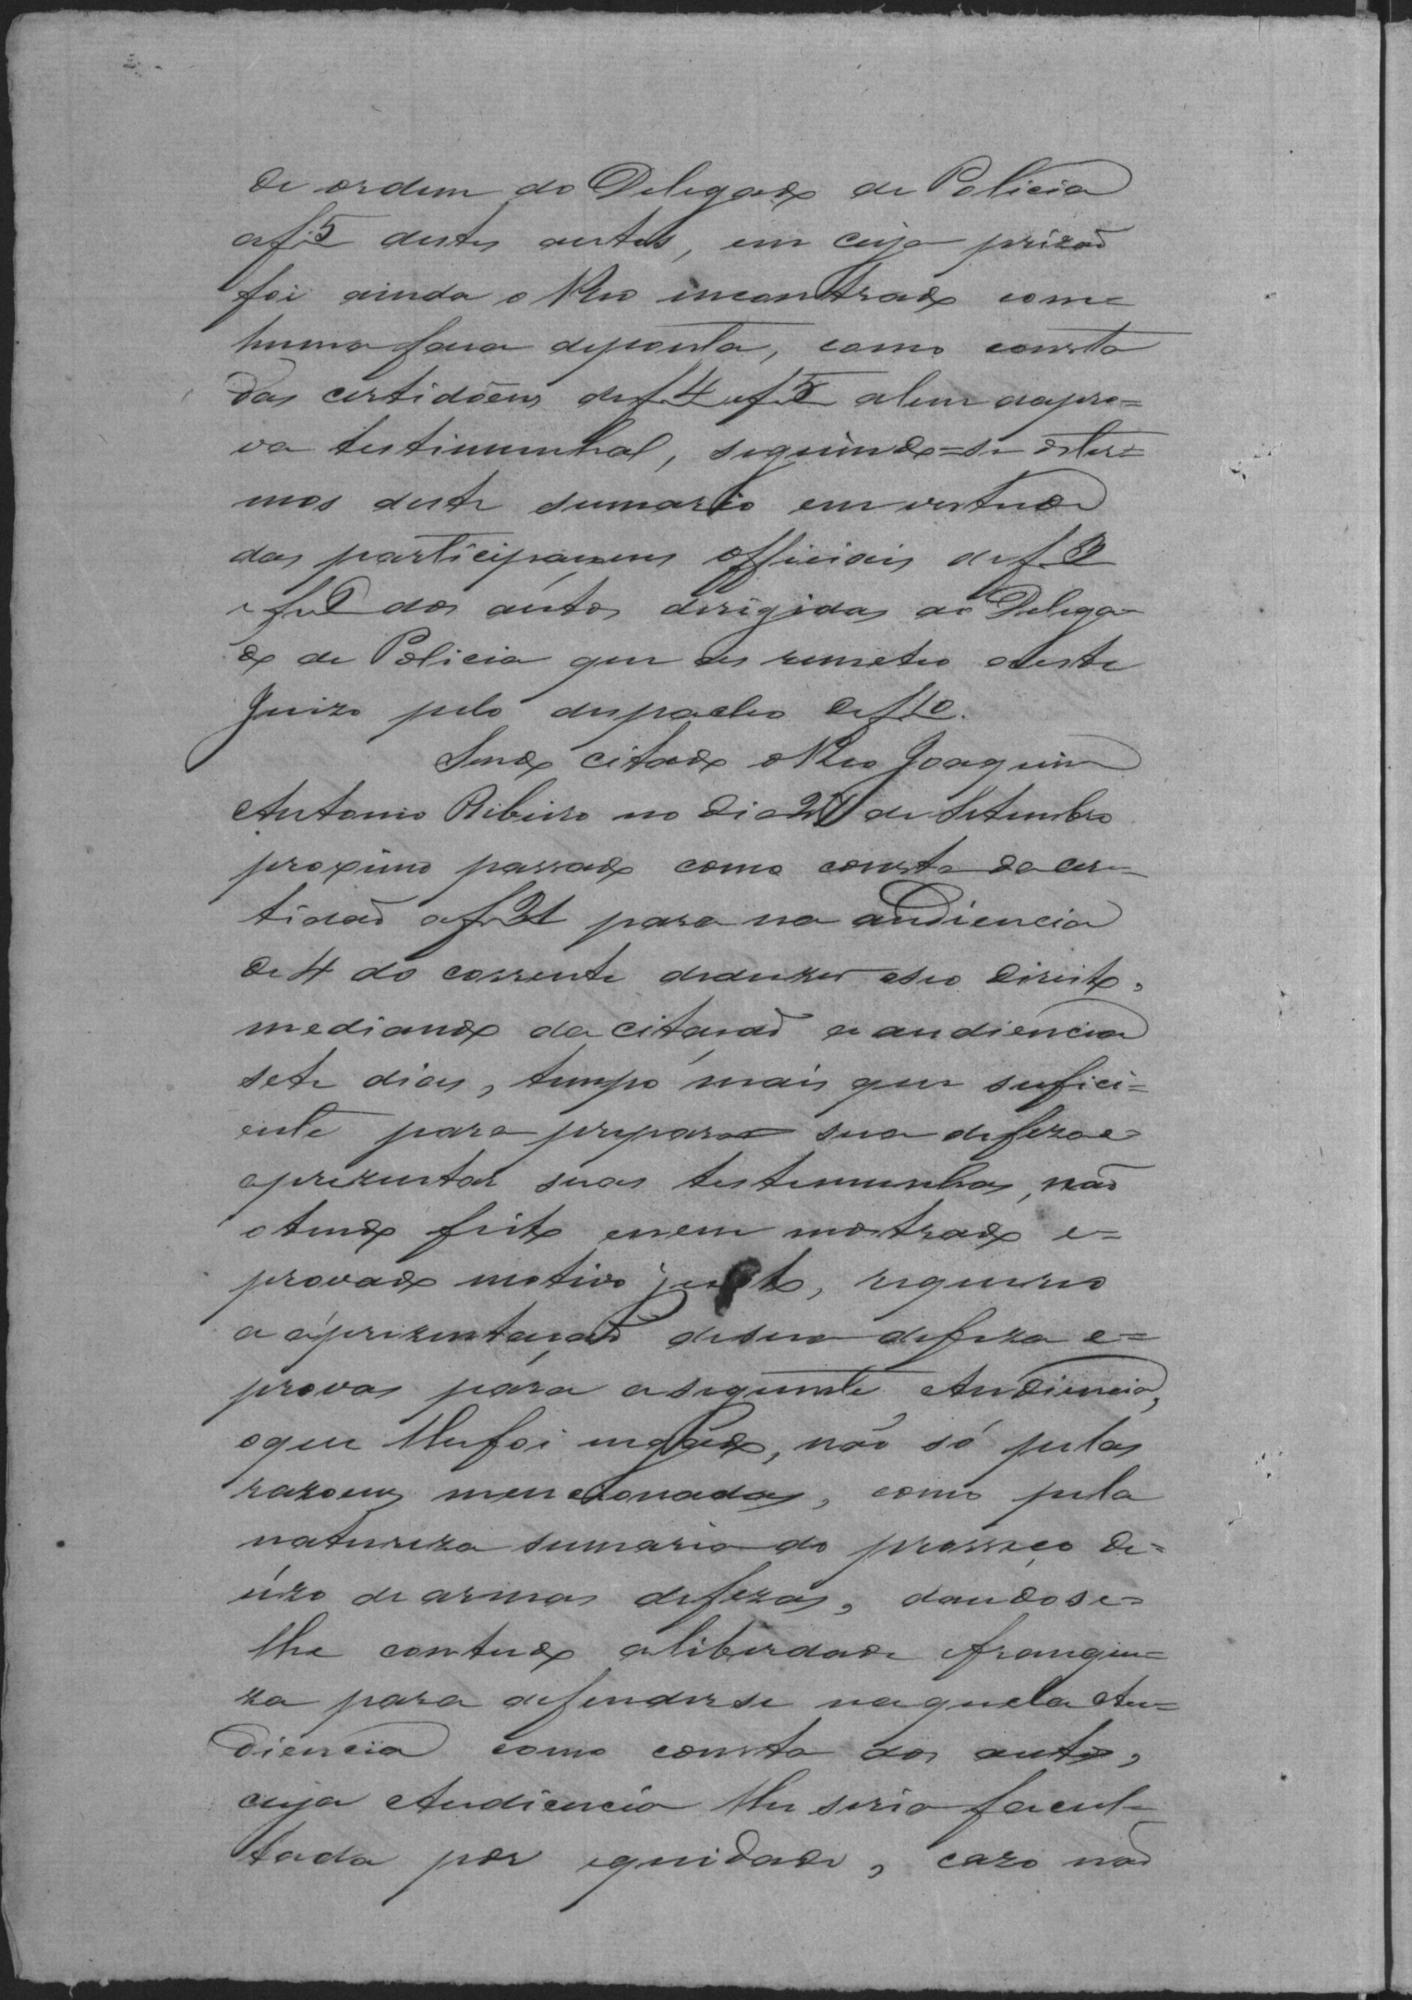 de ordem do Delegado de Policia
af 5 destes autos, em cuja prizaõ
foi ainda o Reo incontrado come
huma faca deponta, como consta
das certidoẽns def 4 ef 5 alem dapro=
va testimunhal, seguindo=se oster=
mos deste sumario em vertude
das participaçoens officiais def
ef dos autos derigidas ao Delega=
do de Policia que as remeteo aeste
Juizo pelo despacho def 10.
Sendo citado o Reo Joaquim
Antonio Ribeiro no dia 27 de Setembro
proximo passado como consta da cer=
tidaõ af 21 para na audiencia
de 4 do corrente deduzir oseo direito,
mediando da citaçaõ a audiencia
sete dias, tempo mais que sufici=
ente para preparar sua defeza e=
aprezentar suas testemunhas, naõ
otendo feito enem mostrado e=
provado motivo justo, requereo
a aprezentaçaõ desua defeza e=
provas para aseguinte Audiencia,
oque lhefoi negado, não só pelas
razoens mencionadas, como pela
natureza sumaria do prosseço de=
uzo de armas defezas, dandose=
lhe contudo aliberdade efranque=
za para defenderse naquela Au=
diencia como consta dos autos,
cuja Audiencia lhe seria facul=
tada por equidade, cazo naõ